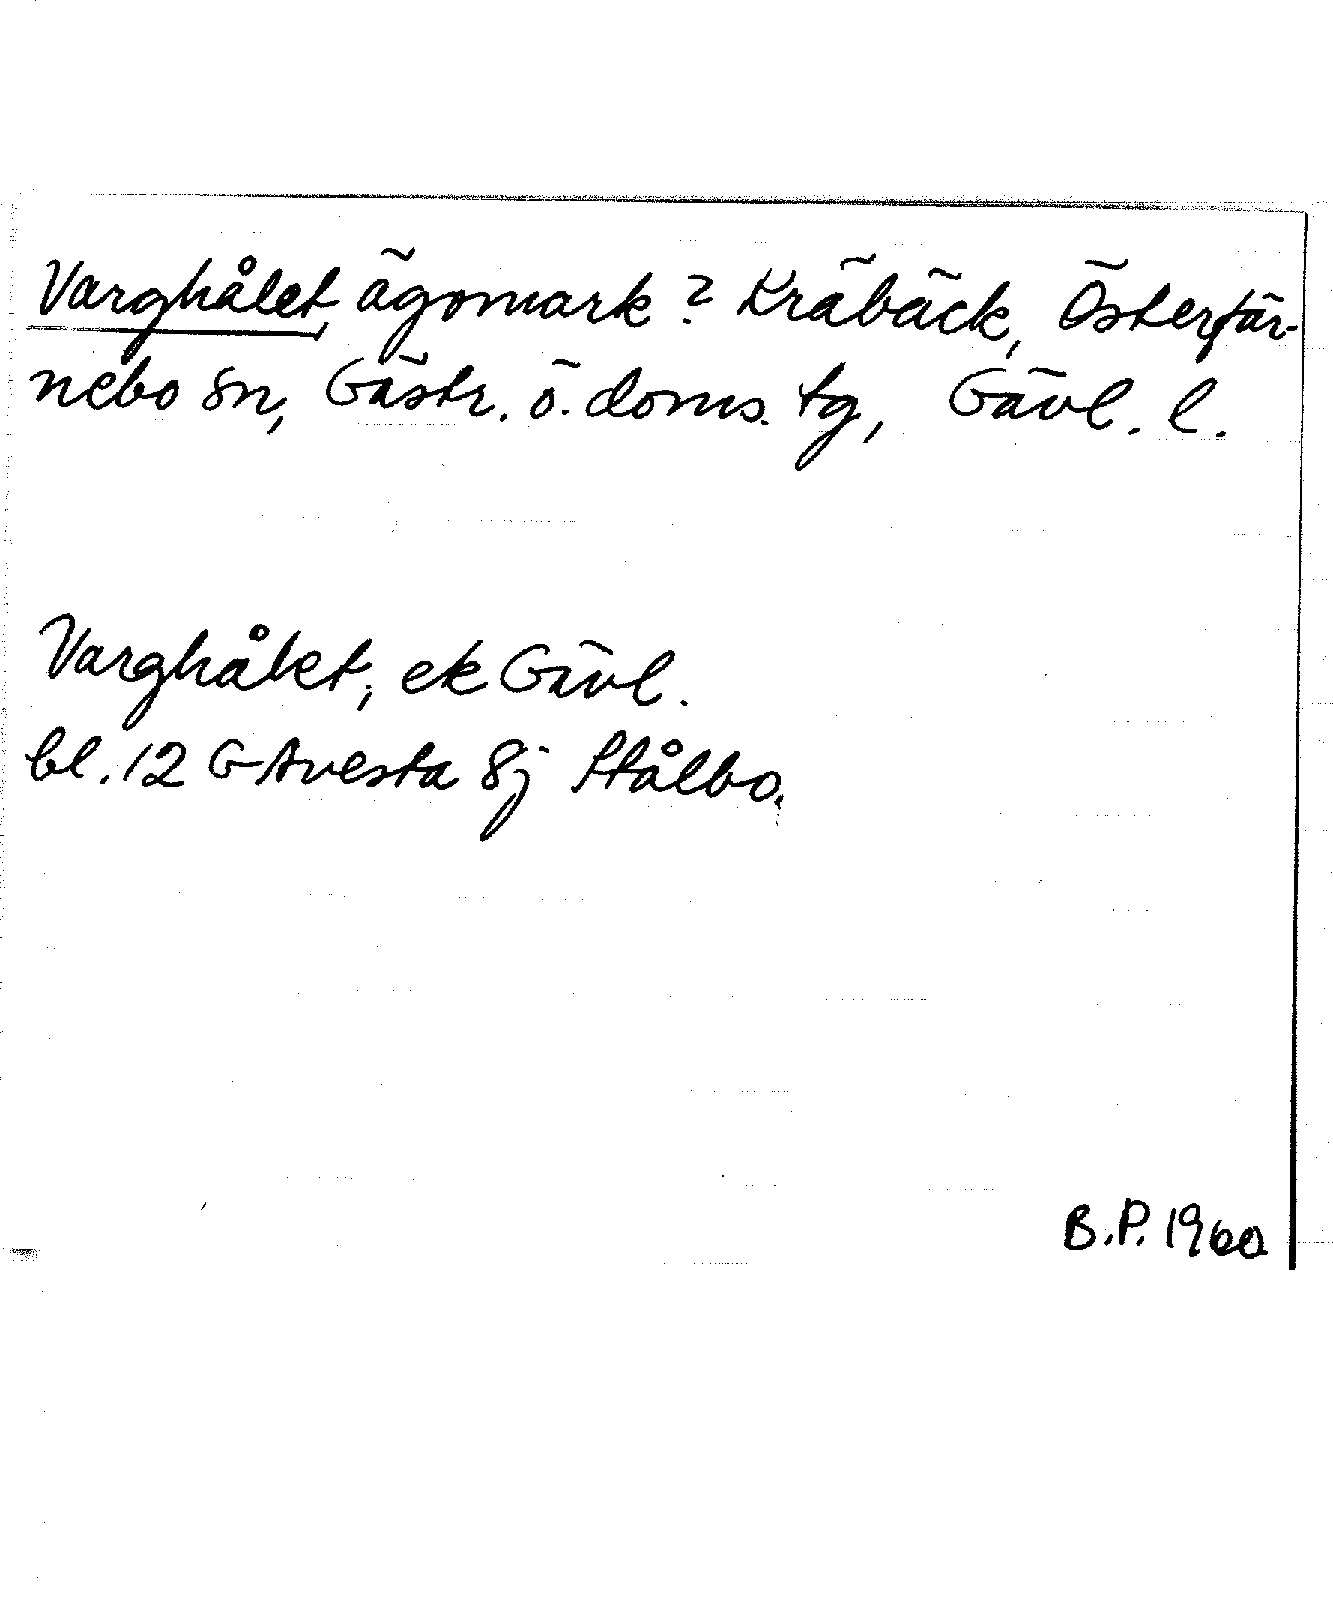 Varghålet, ägomark? Kräbäck, Österfär-
nebo sn, Gästr. ö. doms. tg, Gävl. l.
Varghålet, ek Gävl.
bl. 12 G Avesta 8j Stålbo.
B.P. 1960